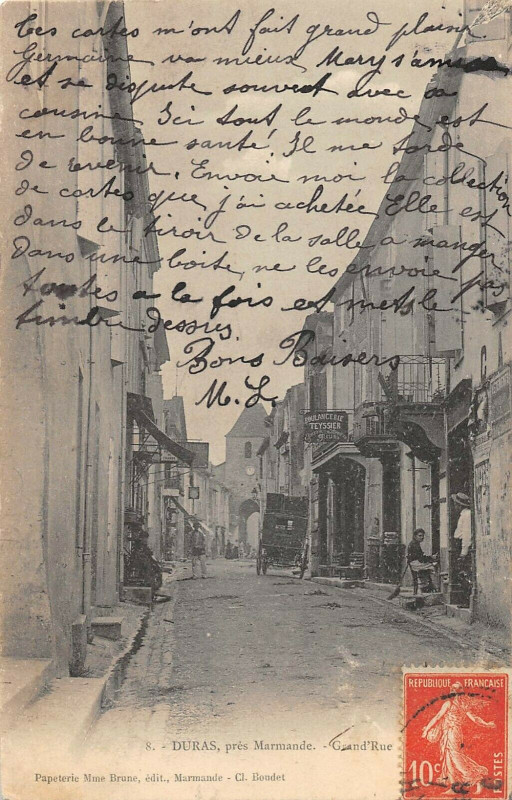 Ces cartes m'ont fait grand plaisir
Germaine va mieux Mary s'amuse
et se dispute souvent avec sa
cousine Ici tout le monde est
en bonne santé Il me tarde
de revenir. Envoie moi la collection
de cartes que j'ai achetée Elle est
dans le tiroir de la salle a manger
dans une boite, ne les envoie pas
toutes a la fois et mets le
timbre dessus
Bons Baisers
M. L.
BOULANGERIE
TEYSSIER
8. - DURAS, près Marmande. - Grand'Rue
Papeterie Mme Brune, édit., Marmande - Cl. Boudet
REPUBLIQUE FRANÇAISE
10c
POSTES